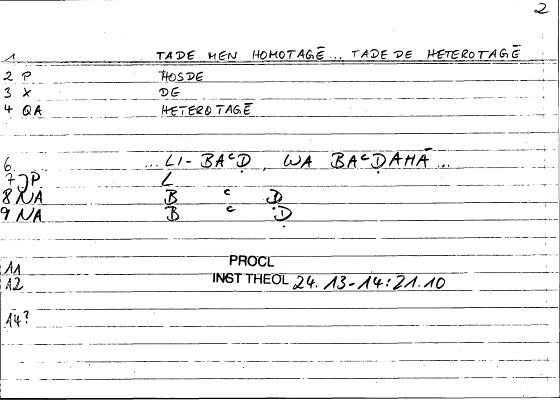 2
1 TADE MEN HOMOTAGĒ ... TADE DE HETEROTAGĒ
2 P HOSDE
3 X DE
4 QA HETEROTAGĒ
6 ... LI- BAᶜḌ , WA BAᶜḌAHĀ ...
7 JP L
8 NA B ᶜ Ḍ
9 NA B ᶜ Ḍ
11 PROCL
12 INST THEOL 24. 13-14:21.10
14?